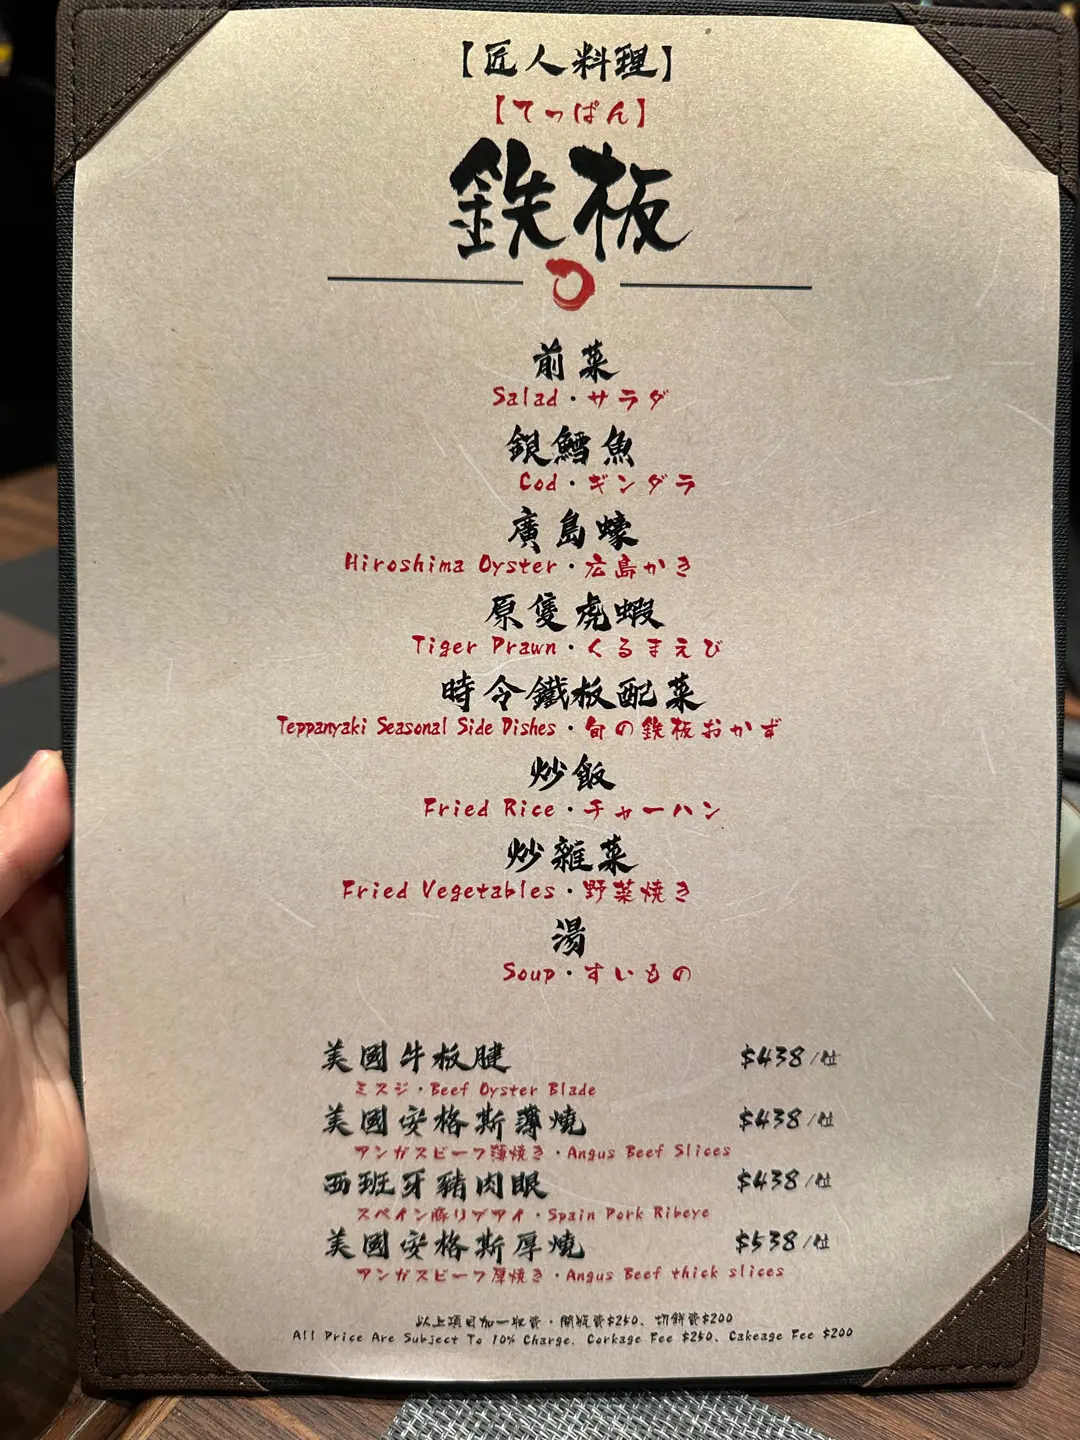 【匠人料理】
【てっぱん】
鉄板
前菜
Salad・サラダ
銀鱈魚
Cod・ギンダラ
廣島蠔
Hiroshima Oyster・広島かき
原隻虎蝦
Tiger Prawn・くるまえび
時令鐵板配菜
Teppanyaki Seasonal Side Dishes・旬の鉄板おかず
炒飯
Fried Rice・チャーハン
炒雜菜
Fried Vegetables・野菜焼き
湯
Soup・すいもの
美國牛板腱 $438/位
ミスジ・Beef Oyster Blade
美國安格斯薄燒 $438/位
アンガスビーフ薄焼き・Angus Beef Slices
西班牙豬肉眼 $438/位
スペイン豚リブアイ・Spain Pork Ribeye
美國安格斯厚燒 $538/位
アンガスビーフ厚焼き・Angus Beef thick slices
以上項目加一收費・開瓶費$250、切餅費$200
All Price Are Subject To 10% Charge. Corkage Fee $250、Cakeage Fee $200